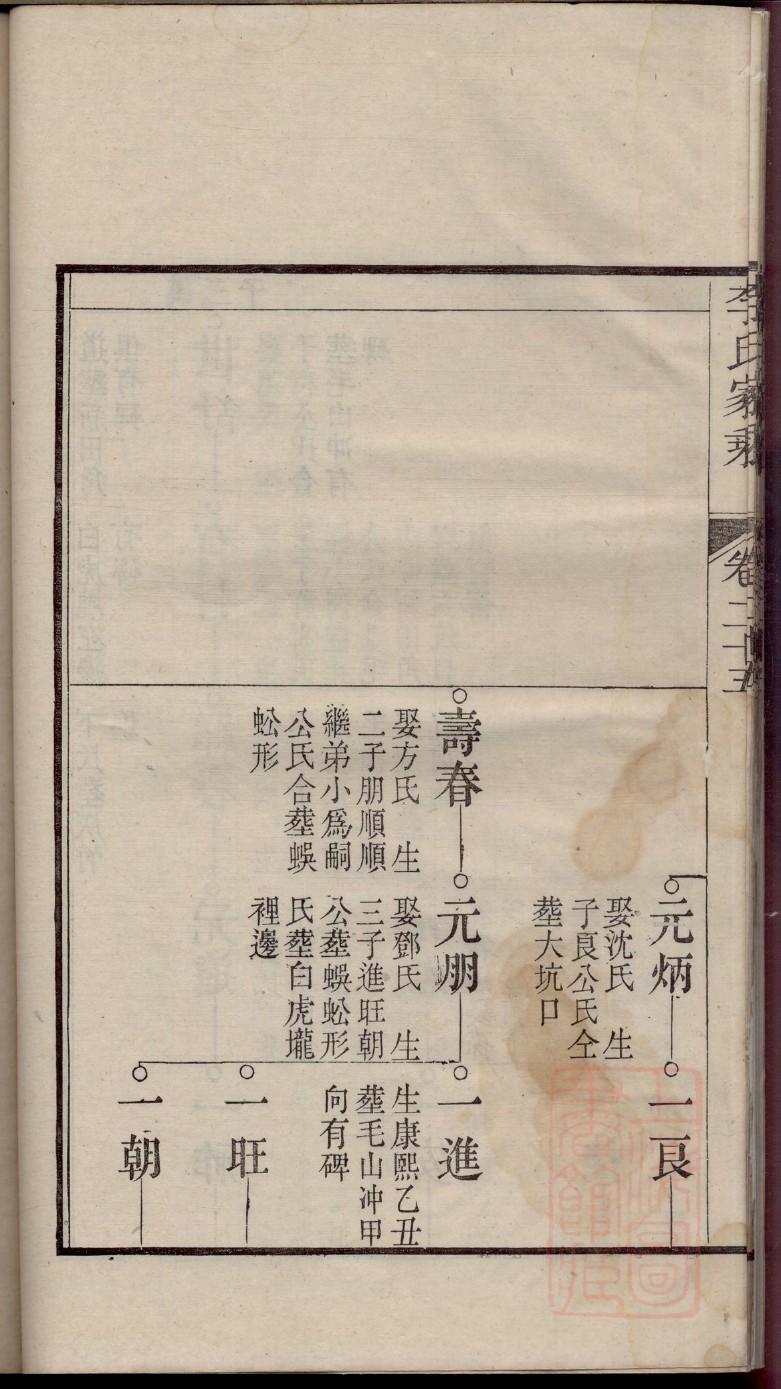 李氏家乘
卷二十五
元炳
娶沈氏 生
子良公氏仝
塟大坑口
一良
壽春
娶方氏 生
二子朋順順
繼弟小爲嗣
公氏合塟蜈
蚣形
元朋
娶鄧氏 生
三子進旺朝
公塟蜈蚣形
氏塟白虎壠
裡邊
一進
生康熙乙丑
塟毛山冲甲
向有碑
一旺
一朝